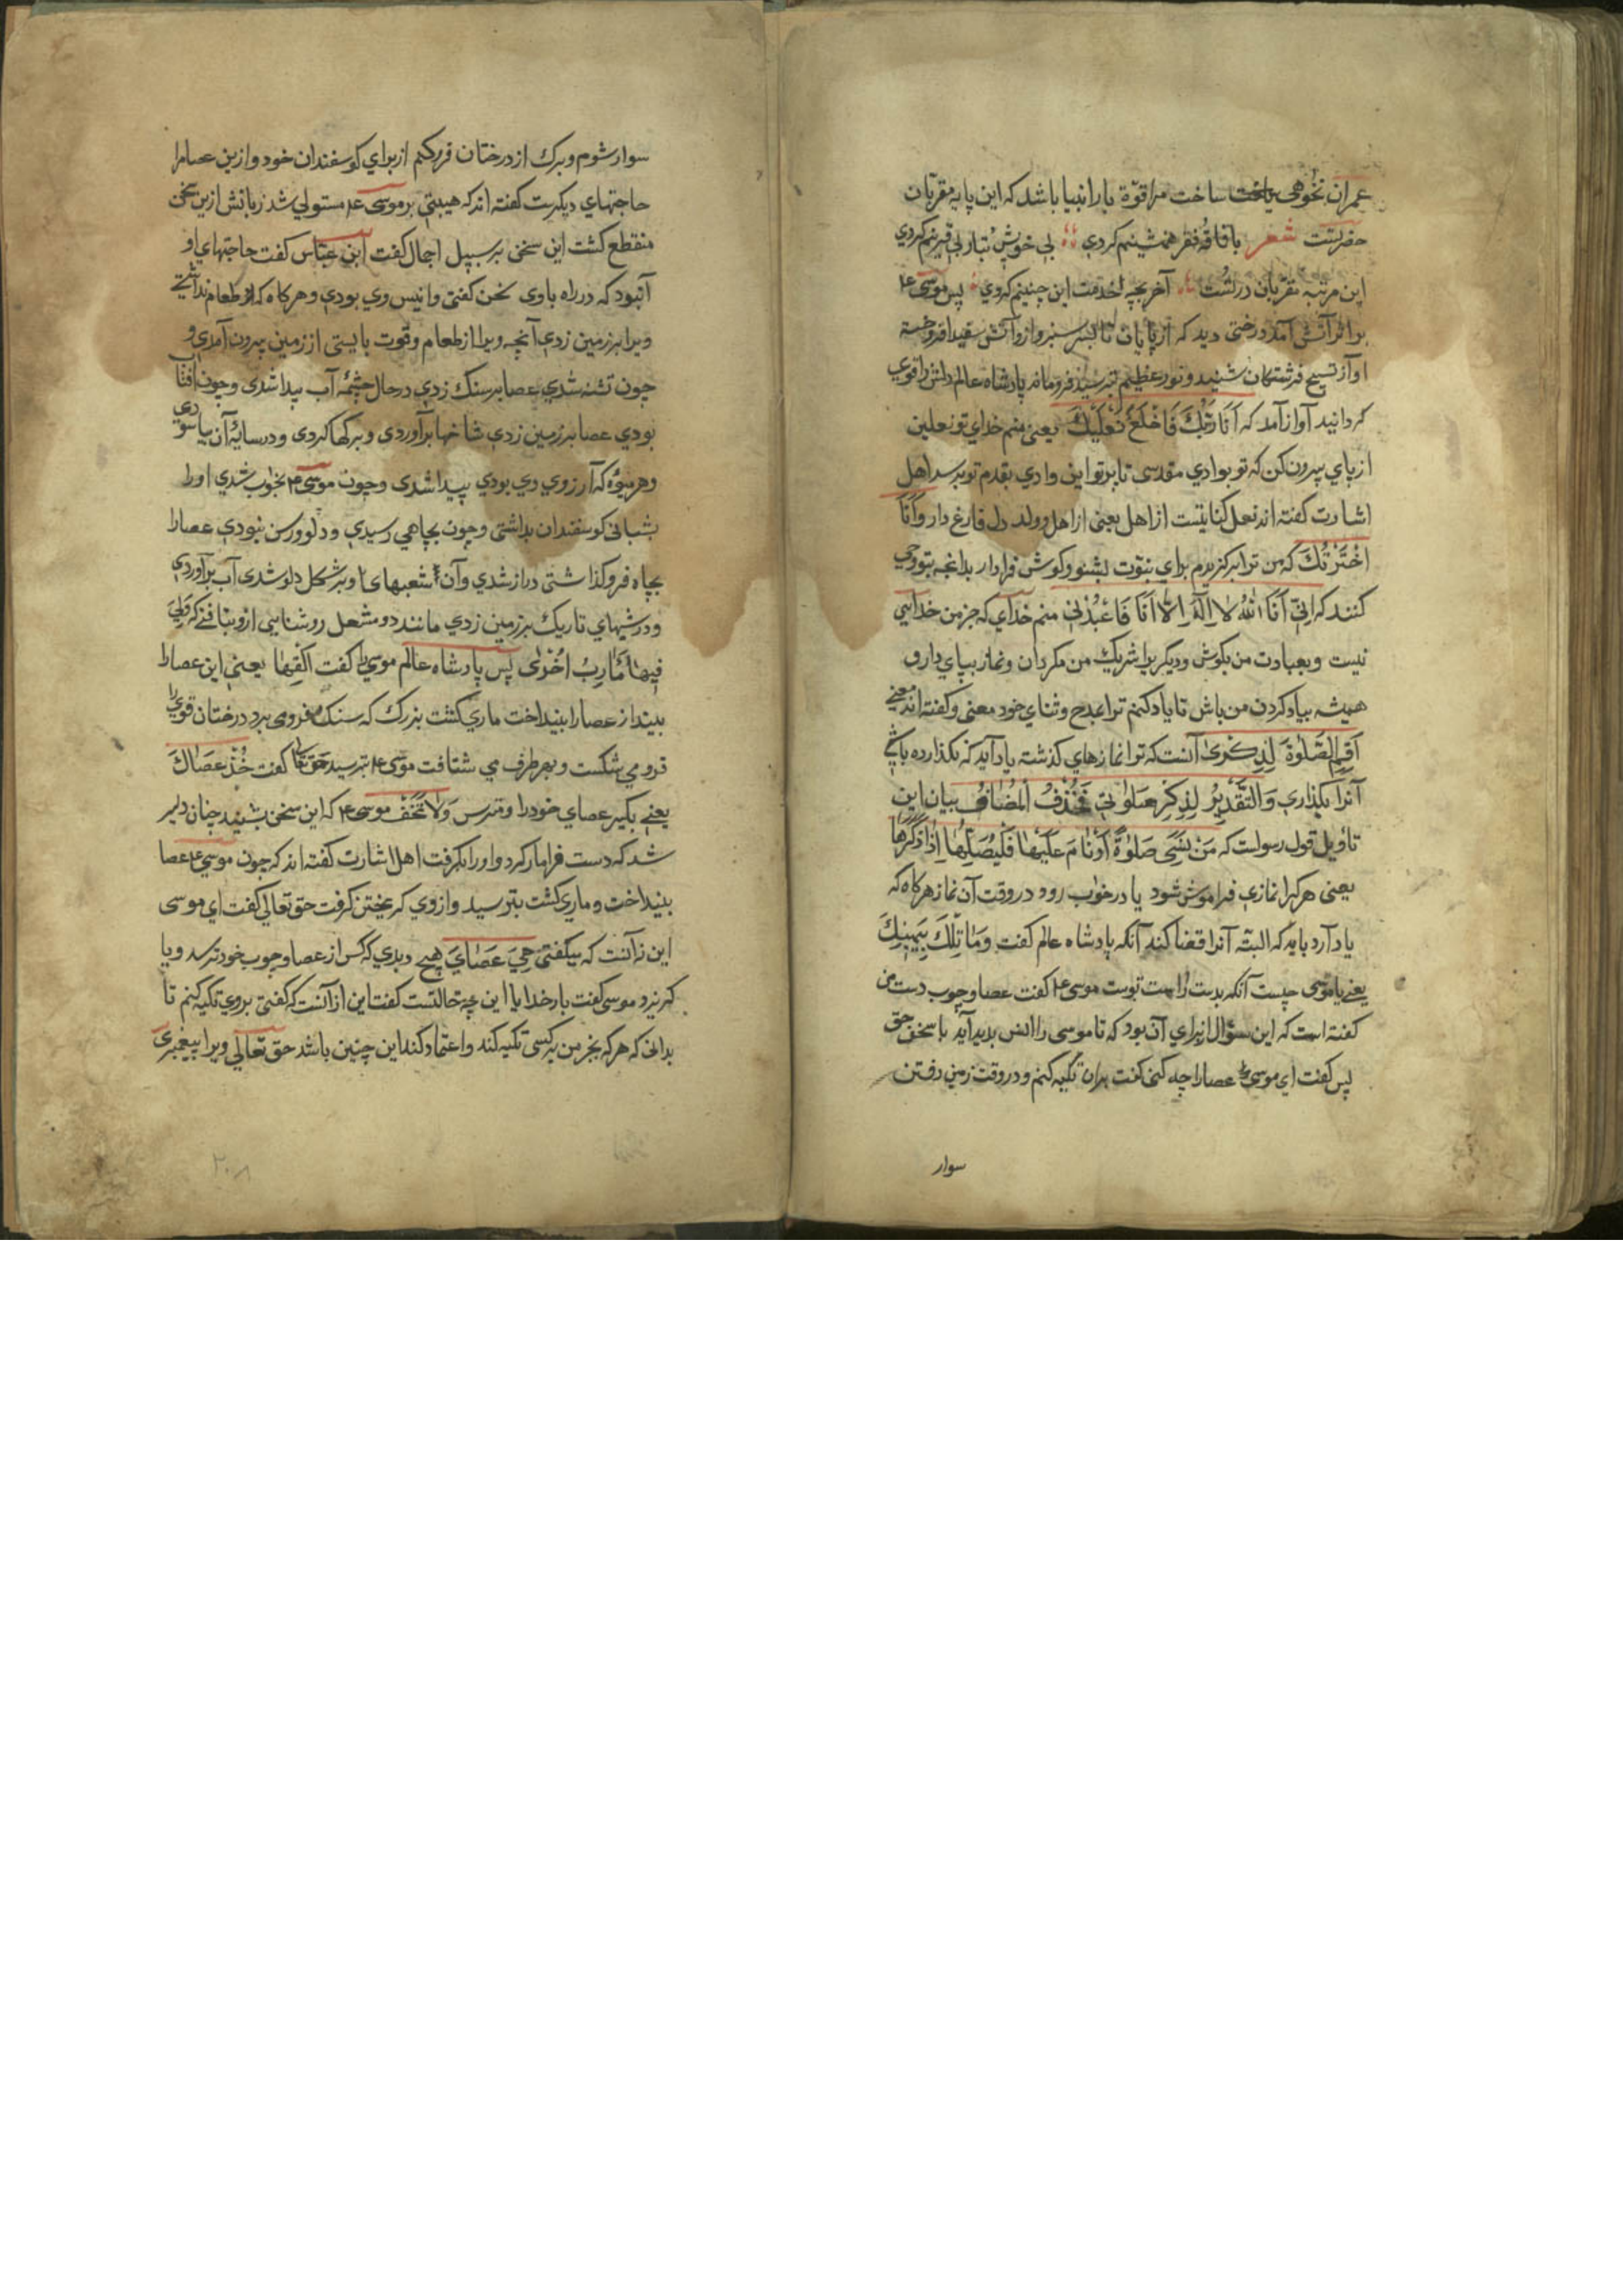 عمران نخوهی یاخت ساخت مرا قوّة بار انبیا باشد که این پایه مقربان
حضرتست شعر با فاقه و فقر همنشینم کردی بی خویش و تبار بی قرینم کردی
این مرتبه مقربان در تست آخر بچه خدمت این چنینم کردی پس موسی ع
بر اثر آتش آمد درختی دید که از پایان تا بسر سبز و ازو آتش سفید افروخته
اواز تسبیح فرشتکان شنید و نور عظیم بترسید فروماند پادشاه عالم دلش را قوی
کردانید آواز آمد که اَنَا رَبُّكَ فَاخْلَعْ نَعْلَيْكَ یعنی منم خدای تو نعلین
از پای بیرون کن که تو بوادی مقدسی تا برتو این وادی بقدم تو برسد اهل
اشارت کفته اند نعل کنایتست از اهل یعنی از اهل و ولد دل فارغ دار وَاَنَا
اخْتَرْتُكَ که من ترا برکزیدم برای نبوّت بشنو و کوش فرادار بدانچه بتو وحی
کنند که اِنَّنِی اَنَا اللهُ لا اِلٰهَ اِلّا اَنَا فَاعْبُدْنِی منم خدای که جز من خدایی
نیست و بعبادت من بکوش و دیکر برا شریک من مکردان و نماز بپای دار و
همیشه بیاد کردن من باش تا یاد کنم ترا بمدح و ثنای خود معنی و کفته اند معنی
اَقِمِ الصَّلوٰةَ لِذِكْرِی آنست که ترا نمازهای کذشته یاد آید که نکذارده باشی
آنرا بکذاری وَالتَّقْدِيرُ لِذِكْرِ صَلَوٰتِی فَحُذِفُ الْمُضَافُ بیان این
تاویل قول رسولست که مَنْ نَسِیَ صَلوٰةً اَوْ نَامَ عَلَيْهَا فَلْيُصَلِّهَا اِذَا ذَكَرَهَا
یعنی هرکرا نمازی فراموش شود یا در خواب رود در وقت آن نماز هرکاه که
یاد آرد باید که البته آنرا قضا کند آنکه پادشاه عالم کفت وَمَا تِلْكَ بِيَمِينِكَ
یعنی یا موسی چیست آنکه بدست راست توست موسی ع کفت عصا و چوب دست من
کفته است که این سؤال از برای آن بود که تا موسی را انس بدید آید با سخن حق
پس کفت ای موسی عصا را چه کنی کفت بران تکیه کنم و در وقت زمین رفتن
سوار
سوار شوم و برک از درختان فرو کنم از برای کوسفندان خود و ازین عصا مرا
حاجتهای دیکرست کفته اند که هیبتی بر موسی ع مستولی شد زبانش ازین سخن
منقطع کشت این سخن بر سبیل اجمال کفت ابن عبّاس کفت حاجتهای او
آن بود که در راه با وی سخن کفتی و انیس وی بودی و هرکاه که از طعام نداشتی
ویرا بر زمین زدی آنچه ویرا از طعام و قوت بایستی از زمین بیرون آمدی و
چون تشنه شدی عصا بر سنک زدی در حال چشمه آب پیدا شدی و چون آفتاب
بودی عصا بر زمین زدی شاخها برآوردی و برکها کردی و در سایه آن بیاسودی
و هر میوه که آرزوی وی بودی پیدا شدی و چون موسی ع بخواب شدی او را
شبانی کوسفندان بداشتی و چون بچاهی رسیدی و دلو و رسن نبودی عصا را
بچاه فرو کذاشتی دراز شدی و آن شعبهای او بر شکل دلو شدی آب برآوردی
و در شبهای تاریک بر زمین زدی مانند دو مشعل روشنایی ازو بتافتی که وَلِیَ
فِيهَا مَآرِبُ اُخْرٰی پس پادشاه عالم موسی را کفت اَلْقِهَا یعنی این عصا را
بینداز عصا را بینداخت ماری کشت بزرک که سنک فرو می برد درختان قوی را
فرو می شکست و بهر طرف می شتافت موسی ع بترسید حق تعا کفت خُذْ عَصَاكَ
یعنی بکیر عصای خود را و مترس وَلَا تَخَفْ موسی ع که این سخن بشنید چنان دلیر
شد که دست فرا مار کرد و او را بکرفت اهل اشارت کفته اند که چون موسی ع عصا
بینداخت و ماری کشت بترسید و از وی کریختن کرفت حق تعالی کفت ای موسی
این نه آنست که میکفتی هِیَ عَصَایَ هیچ دیدی که کس از عصا و چوب خود ترسد و یا
کریزد موسی کفت بار خدایا این چه حالتست کفت این از آنست که کفتی بروی تکیه کنم تا
بدانی که هرکه بجز من بر کسی تکیه کند و اعتماد کند این چنین باشد حق تعالی ویرا پیغمبری
۲۰۸